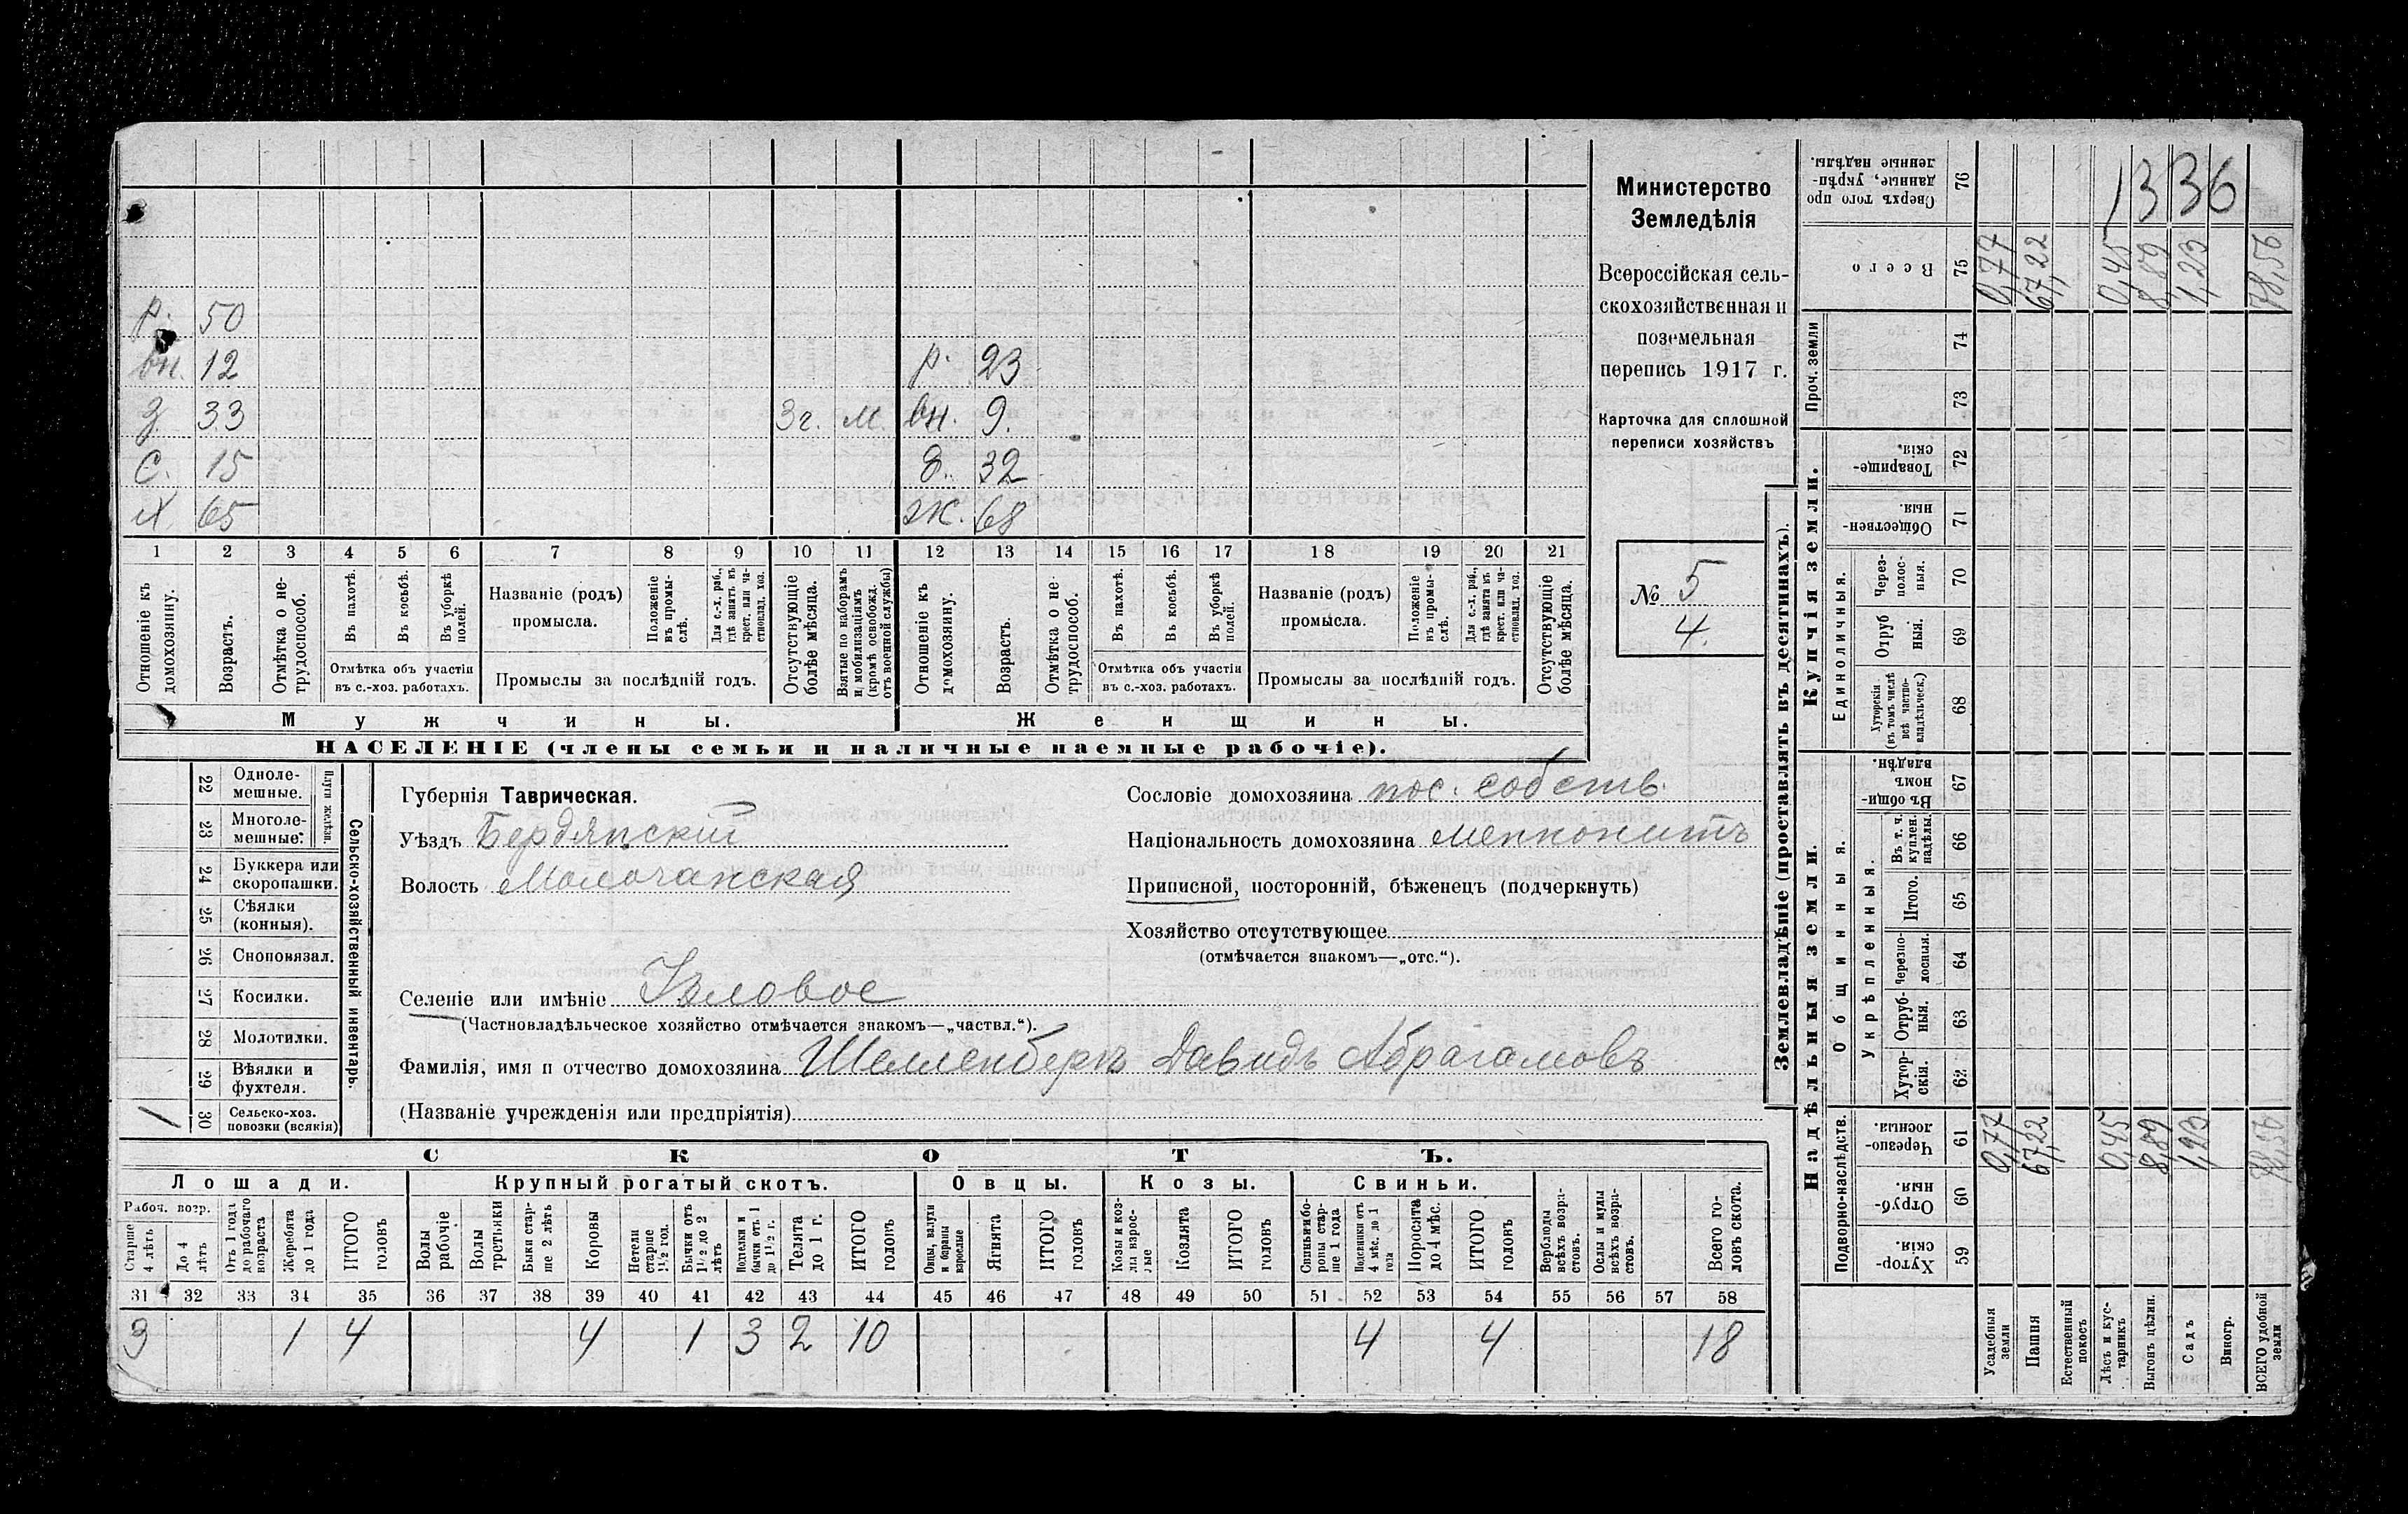 р. 50
вн. 12 р. 23
з. 33 3 г. м. вн. 9.
с. 15 д. 32
х. 65 ж. 68
1 2 3 4 5 6 7 8 9 10 11 12 13 14 15 16 17 18 19 20 21
Отношеніе къ домохозяину.
Возрастъ.
Отмѣтка о нетрудоспособ.
Въ пахотѣ.
Въ косьбѣ.
Въ уборкѣ полей.
Отмѣтка объ участіи въ с.-хоз. работахъ.
Названіе (родъ) промысла.
Положеніе въ промыслѣ.
Для с.-х. раб., гдѣ занятъ въ крест. или частновлад. хоз.
Промыслы за послѣдній годъ.
Отсутствующіе болѣе мѣсяца.
Взятые по наборамъ и мобилизаціямъ (кромѣ освобожд. отъ военной службы)
Отношеніе къ домохозяину.
Возрастъ.
Отмѣтка о нетрудоспособ.
Въ пахотѣ.
Въ косьбѣ.
Въ уборкѣ полей.
Отмѣтка объ участіи въ с.-хоз. работахъ.
Названіе (родъ) промысла.
Положеніе въ промыслѣ.
Для с.-х. раб., гдѣ занята въ крест. или частновлад. хоз.
Промыслы за послѣдній годъ.
Отсутствующіе болѣе мѣсяца.
Мужчины.
Женщины.
НАСЕЛЕНІЕ (члены семьи и наличные наемные рабочіе).
Министерство
Земледѣлія
Всероссійская сель-
скохозяйственная и
поземельная
перепись 1917 г.
Карточка для сплошной
переписи хозяйствъ
№ 5
4.
22 Одноле-
мешные.
23 Многоле-
мешные.
Плуги желѣзн.
24 Буккера или
скоропашки.
25 Сѣялки
(конныя).
26 Сноповязал.
27 Косилки.
28 Молотилки.
29 Вѣялки и
фухтеля.
1 30 Сельско-хоз.
повозки (всякія)
Сельско-хозяйственный инвентарь.
Губернія Таврическая.
Уѣздъ Бердянскій
Волость Молочанская
Сословіе домохозяина пос. собств.
Національность домохозяина меннонитъ
Приписной, посторонній, бѣженецъ (подчеркнуть)
Хозяйство отсутствующее
(отмѣчается знакомъ—„отс.“).
Селеніе или имѣніе
(Частновладѣльческое хозяйство отмѣчается знакомъ—„частвл.“).
Фамилія, имя и отчество домохозяина Шелленбергъ Давидъ Абрагамовъ
(Названіе учрежденія или предпріятія)
СКОТЪ.
Лошади. Крупный рогатый скотъ. Овцы. Козы. Свиньи.
Рабоч. возр.
Старше 4 лѣтъ
До 4 лѣтъ
Отъ 1 года до рабочаго возраста
Жеребята до 1 года
ИТОГО головъ
Волы рабочіе
Волы третьяки
Быки старше 2 лѣтъ
Коровы
Нетели старше 1½ год.
Бычки отъ 1½ до 2 лѣтъ
Подтелки и бычки отъ 1 до 1½ г.
Телята до 1 г.
ИТОГО головъ
Овцы, валухи и бараны взрослые
Ягнята
ИТОГО головъ
Козы и козлы взрослые
Козлята
ИТОГО головъ
Свиньи и бороны старше 1 года
Подсвинки отъ 4 мѣс. до 1 года
Поросята до 4 мѣс.
ИТОГО головъ
Верблюды всѣхъ возрастовъ.
Ослы и мулы всѣхъ возрастовъ.
Всего головъ скота.
31 32 33 34 35 36 37 38 39 40 41 42 43 44 45 46 47 48 49 50 51 52 53 54 55 56 57 58
3 1 4 4 1 3 2 10 4 4 18
Землевладѣніе (проставлять въ десятинахъ).
Надѣльныя земли.
Купчія земли.
Проч. земли
Подворно-наслѣдств.
Общинныя.
Укрѣпленныя.
Единоличныя.
Сверхъ того проданные, укрѣпленные надѣлы. 76
1336
Всего 75 0,77 67,22 0,45 8,89 1,23 78,56
74
73
Товарищескія. 72
Общественныя. 71
Черезполосныя. 70
Отрубныя. 69
Хуторскія (въ томъ числѣ всѣ частновладѣльческ.) 68
Въ общинномъ владѣн. 67
Въ т. ч. куплен. надѣлы. 66
Итого. 65
Черезполосныя. 64
Отрубныя. 63
Хуторскія. 62
Черезполосныя. 61 0,77 67,22 0,45 8,89 1,23 78,56
Отрубныя. 60
Хуторскія. 59
Усадебныя земли
Пашня
Естественный покосъ
Лѣсъ и кустарникъ
Выгонъ цѣлин.
Садъ
Виногр.
ВСЕГО удобной земли